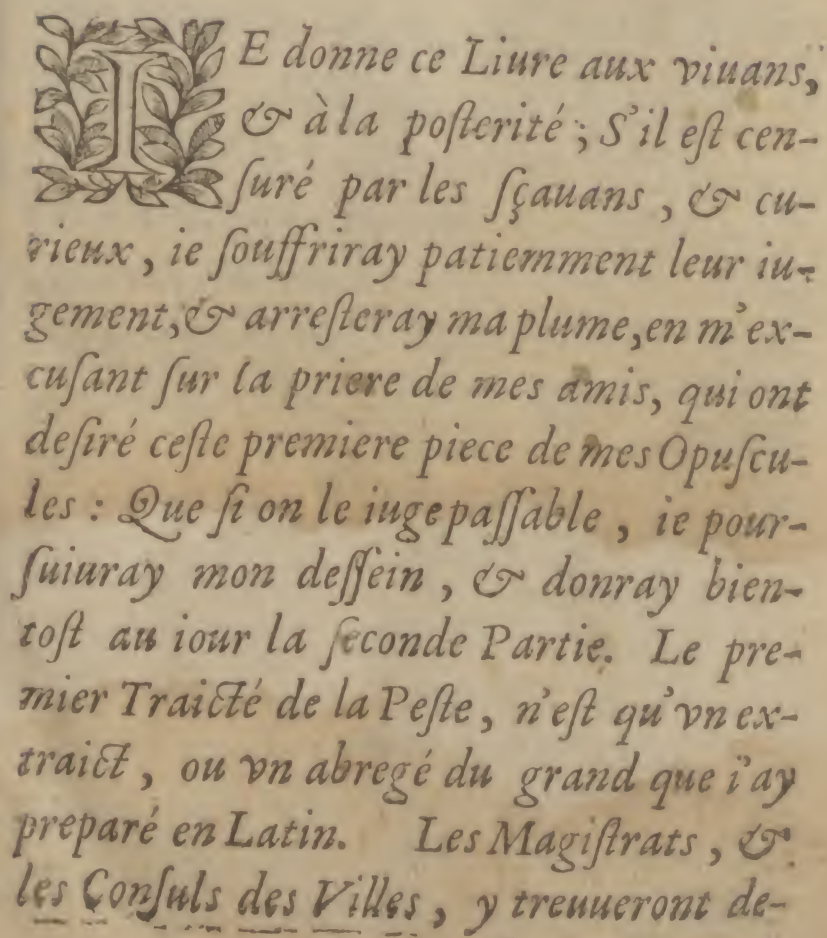 IE donne ce Liure aux viuans,
& à la poſterité ; S'il eſt cen-
ſuré par les ſçauans , & cu-
rieux , ie ſouffriray patiemment leur iu-
gement, & arreſteray ma plume, en m'ex-
cuſant ſur la priere de mes amis, qui ont
deſiré ceſte premiere piece de mes Opuſcu-
les : Que ſi on le iuge paſſable , ie pour-
ſuiuray mon deſſein , & donray bien-
toſt au iour la ſeconde Partie. Le pre-
mier Traicté de la Peſte , n'eſt qu'vn ex-
traict , ou vn abregé du grand que i'ay
preparé en Latin. Les Magiſtrats , &
les Conſuls des Villes , y treuueront de-